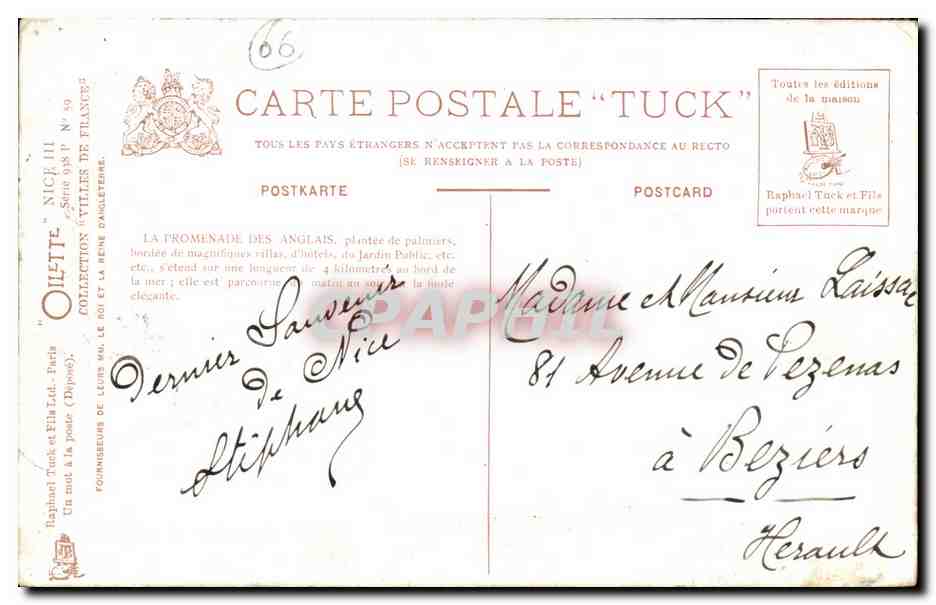 06
CARTE POSTALE "TUCK"
TOUS LES PAYS ÉTRANGERS N'ACCEPTENT PAS LA CORRESPONDANCE AU RECTO
(SE RENSEIGNER A LA POSTE)
POSTKARTE
POSTCARD
Toutes les éditions
de la maison
Raphael Tuck et Fils
portent cette marque
"OILETTE" NICE III
Série 938 P N° 59
COLLECTION "VILLES DE FRANCE"
FOURNISSEURS DE LEURS MM. LE ROI ET LA REINE D'ANGLETERRE.
Raphael Tuck et Fils Ltd.- Paris
Un mot à la poste (Déposé).
LA PROMENADE DES ANGLAIS, plantée de palmiers,
bordée de magnifiques villas, d'hôtels, du Jardin Public, etc.
etc., s'étend sur une longueur de 4 kilomètres au bord de
la mer ; elle est parcourue du matin au soir par la foule
élégante.
CPAPHIL
Dernier Souvenir
de Nice
Stéphane
Madame et Monsieur Laissac
81 Avenue de Pezenas
à Beziers
Herault